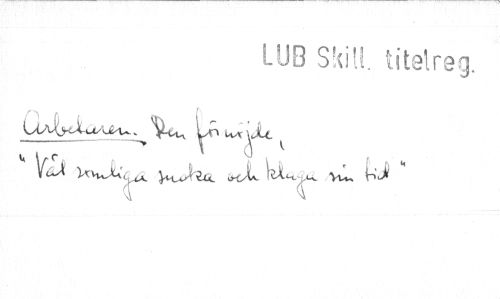 LUB Skill. titelreg.
Arbetaren. Den förnöjde,
"Låt somliga sucka och klaga sin tid"